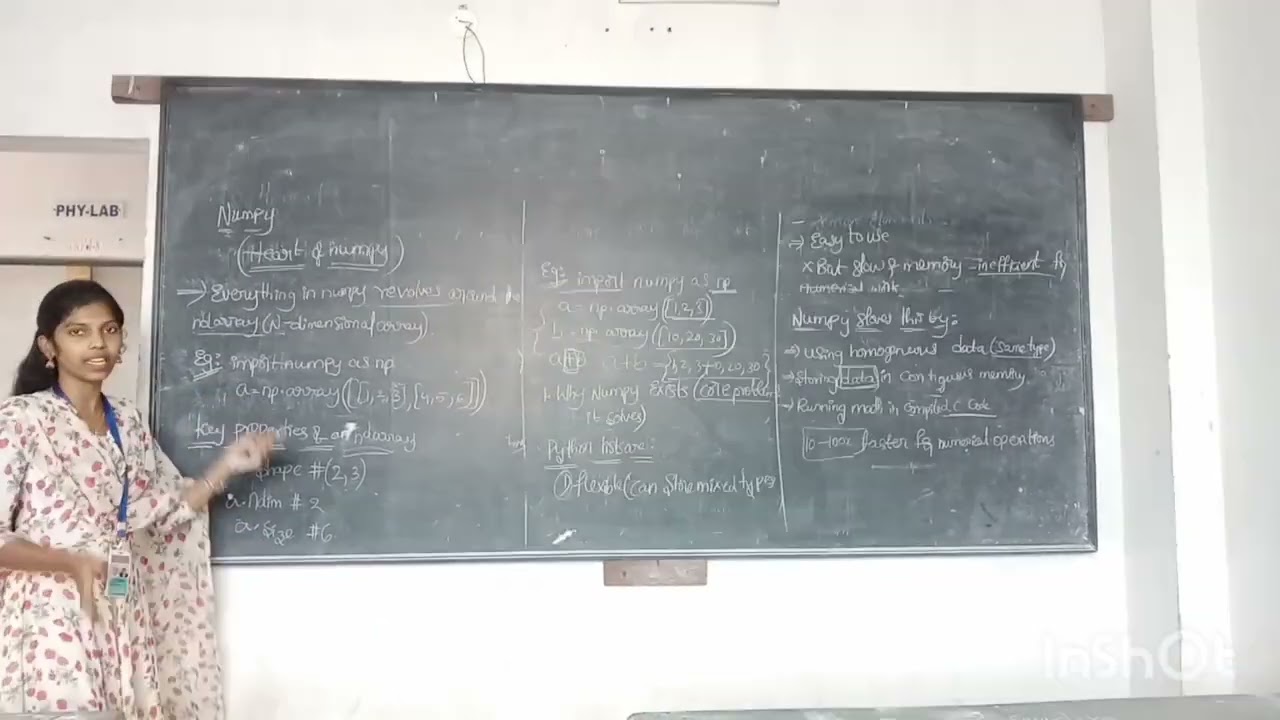 PHY-LAB
Numpy
(Heart of numpy)
=> Everything in numpy revolves around the
ndarray (N-dimensional array).
Eg: import numpy as np
a = np.array([[1, 2, 3], [4, 5, 6]])
Key properties of an ndarray
shape #(2,3)
a.ndim # 2
a.size #6
Eg: import numpy as np
a = np.array([1,2,3])
b = np.array([10,20,30])
a + b = {1, 2, 3+10, 20, 30}
1. Why Numpy Exists (core problem
it solves)
Python lists are:
① flexible (can store mixed types
=> Easy to use
x But slow & memory-inefficient for
numerical work
Numpy slove this by:
=> using homogeneous data (same type)
=> Storing data in contiguous memory
=> Running math in compiled C code
10-100x faster for numerical operations
InShOt